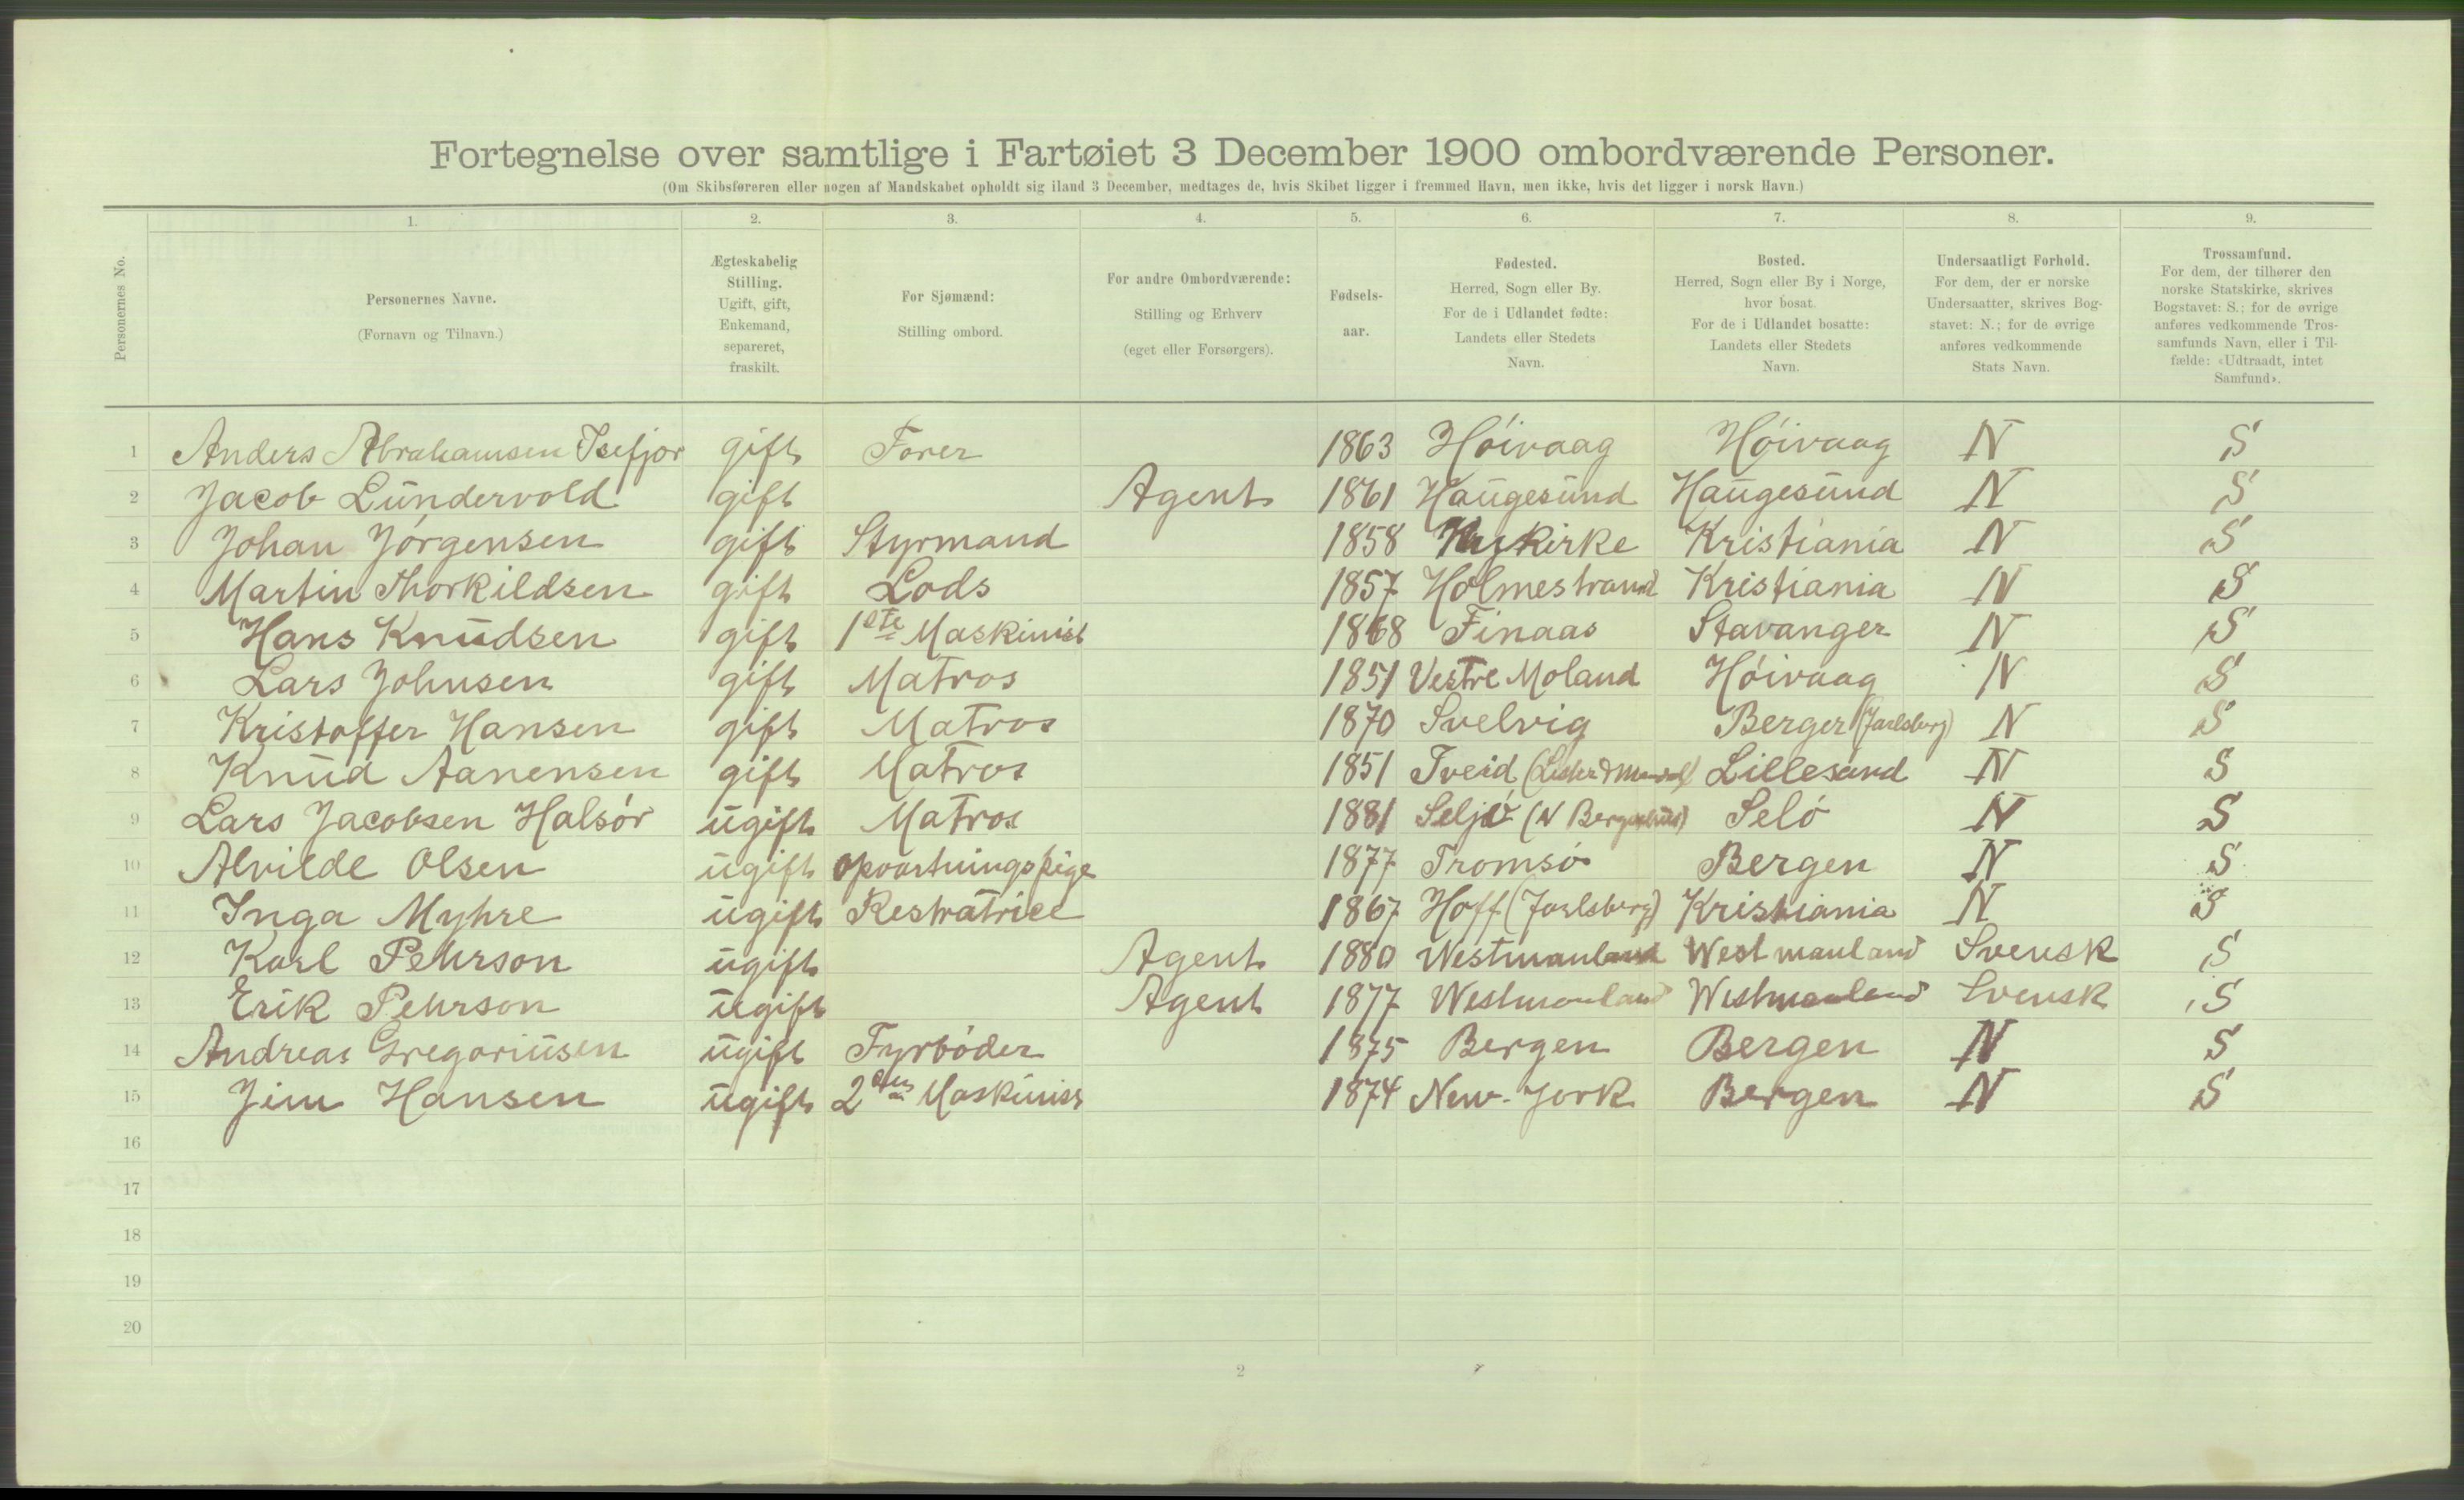 Fortegnelse over samtlige i Fartøiet 3 December 1900 ombordværende Personer.
(Om Skibsføreren eller nogen af Mandskabet opholdt sig iland 3 December, medtages de, hvis Skibet ligger i fremmed Havn, men ikke, hvis det ligger i norsk Havn.)
Personernes No.
1. 2. 3. 4. 5. 6. 7. 8. 9.
Personernes Navne.
(Fornavn og Tilnavn.)
Ægteskabelig
Stilling.
Ugift, gift,
Enkemand,
separeret,
fraskilt.
For Sjømænd:
Stilling ombord.
For andre Ombordværende:
Stilling og Erhverv
(eget eller Forsørgers).
Fødsels-
aar.
Fødested.
Herred, Sogn eller By.
For de i Udlandet fødte:
Landets eller Stedets
Navn.
Bosted.
Herred, Sogn eller By i Norge,
hvor bosat.
For de i Udlandet bosatte:
Landets eller Stedets
Navn.
Undersaatligt Forhold.
For dem, der er norske
Undersaatter, skrives Bog-
stavet: N.; for de øvrige
anføres vedkommende
Stats Navn.
Trossamfund.
For dem, der tilhører den
norske Statskirke, skrives
Bogstavet: S.; for de øvrige
anføres vedkommende Tros-
samfunds Navn, eller i Til-
fælde: «Udtraadt, intet
Samfund».
1 Anders Abrahamsen Isefjor gift Fører 1863 Høivaag Høivaag N S
2 Jacob Lundervold gift Agent 1861 Haugesund Haugesund N S
3 Johan Jørgensen gift Styrmand 1858 Nykirke Kristiania N S
4 Martin Thorkildsen gift Lods 1857 Holmestrand Kristiania N S
5 Hans Knudsen gift 1ste Maskinist 1868 Finaas Stavanger N S
6 Lars Johnsen gift Matros 1851 Vestre Moland Høivaag N S
7 Kristoffer Hansen gift Matros 1870 Svelvig Berger (Jarlsberg) N S
8 Knud Aanensen gift Matros 1851 Tveid (Lister & Mandal) Lillesand N S
9 Lars Jacobsen Halsør ugift Matros 1881 Seljø (N Bergenhus) Selø N S
10 Alvilde Olsen ugift opvartningspige 1877 Tromsø Bergen N S
11 Inga Myhre ugift Restratrice 1867 Hoff (Jarlsberg) Kristiania N S
12 Karl Pehrson ugift Agent 1880 Westmanland Westmanland Svensk S
13 Erik Pehrson ugift Agent 1877 Westmanland Westmanland Svensk S
14 Andreas Gregoriusen ugift Fyrbøder 1875 Bergen Bergen N S
15 Jim Hansen ugift 2den Maskinist 1874 New-York Bergen N S
16
17
18
19
20
2